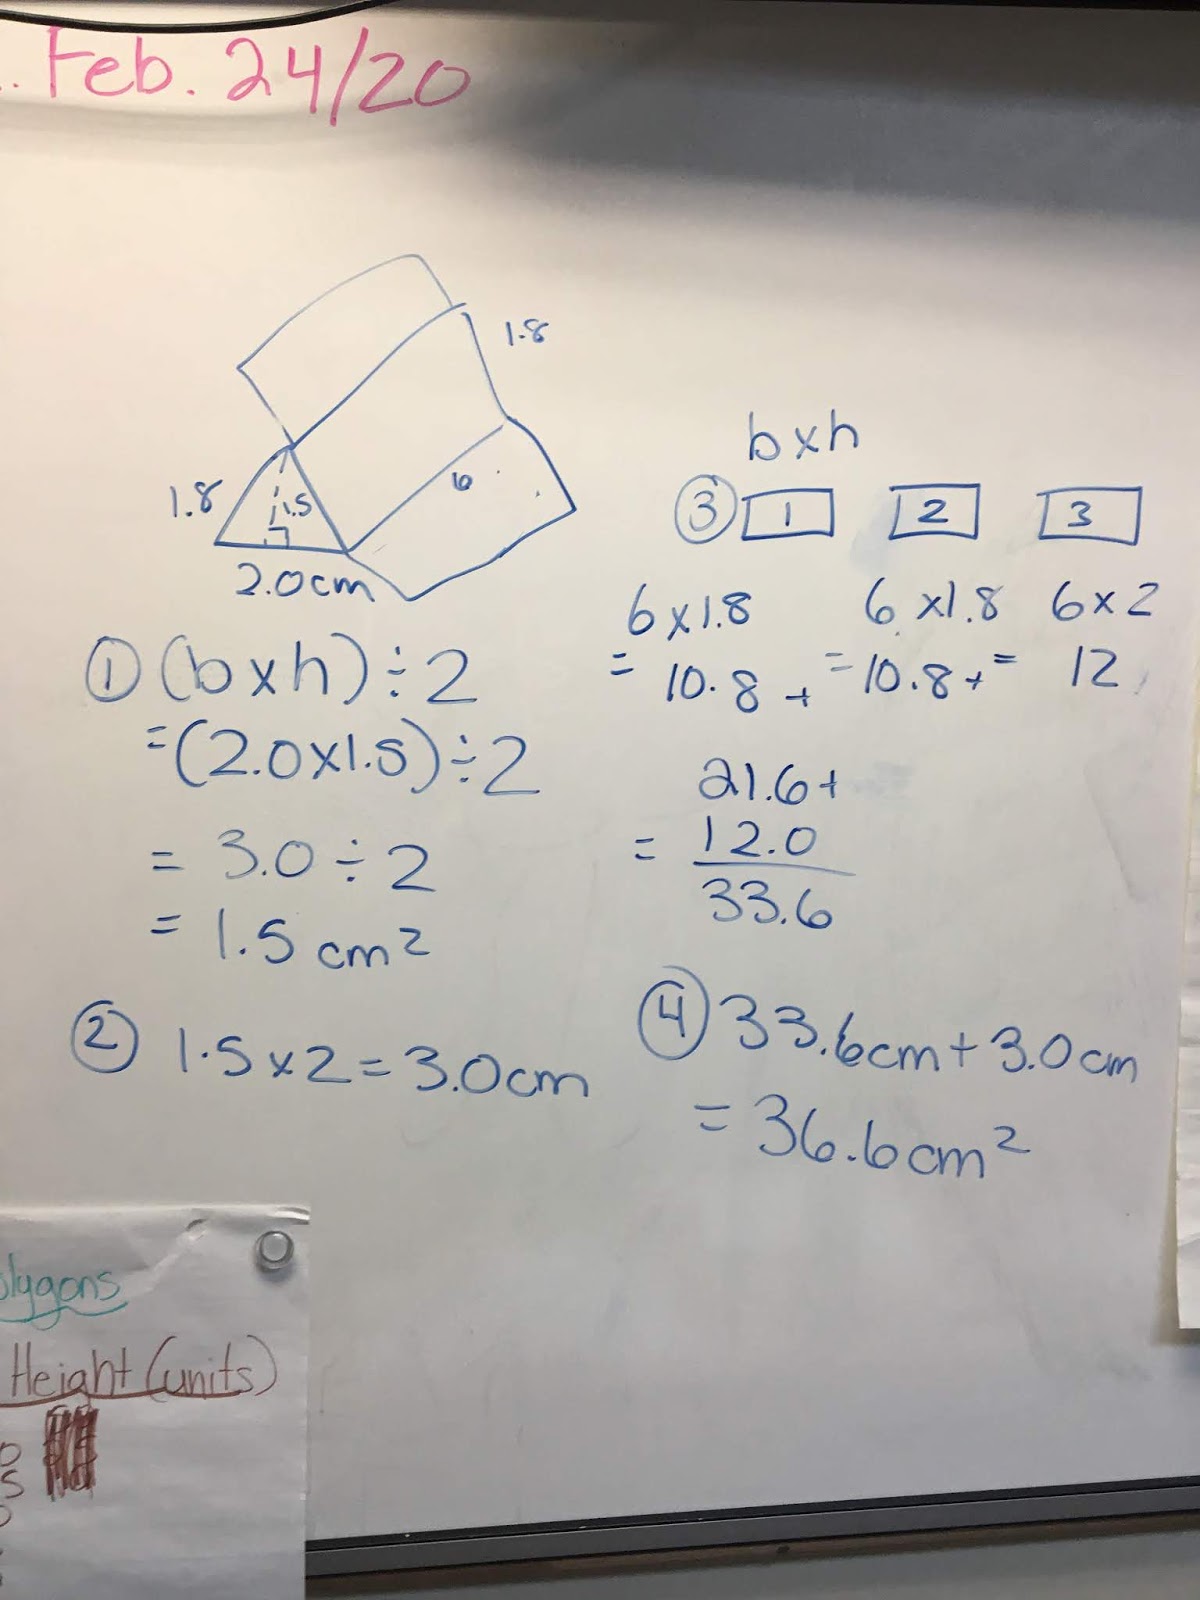 .. Feb. 24/20
1.8
1.8
1.5
6
2.0cm
① (bxh) ÷ 2
= (2.0x1.5) ÷ 2
= 3.0 ÷ 2
= 1.5 cm²
② 1.5 x 2 = 3.0cm
bxh
③ 1 2 3
6 x 1.8 6 x 1.8 6 x 2
= 10.8 + = 10.8 + = 12
21.6 +
= 12.0
33.6
④ 33.6cm + 3.0cm
= 36.6cm²
olygons
Height (units)